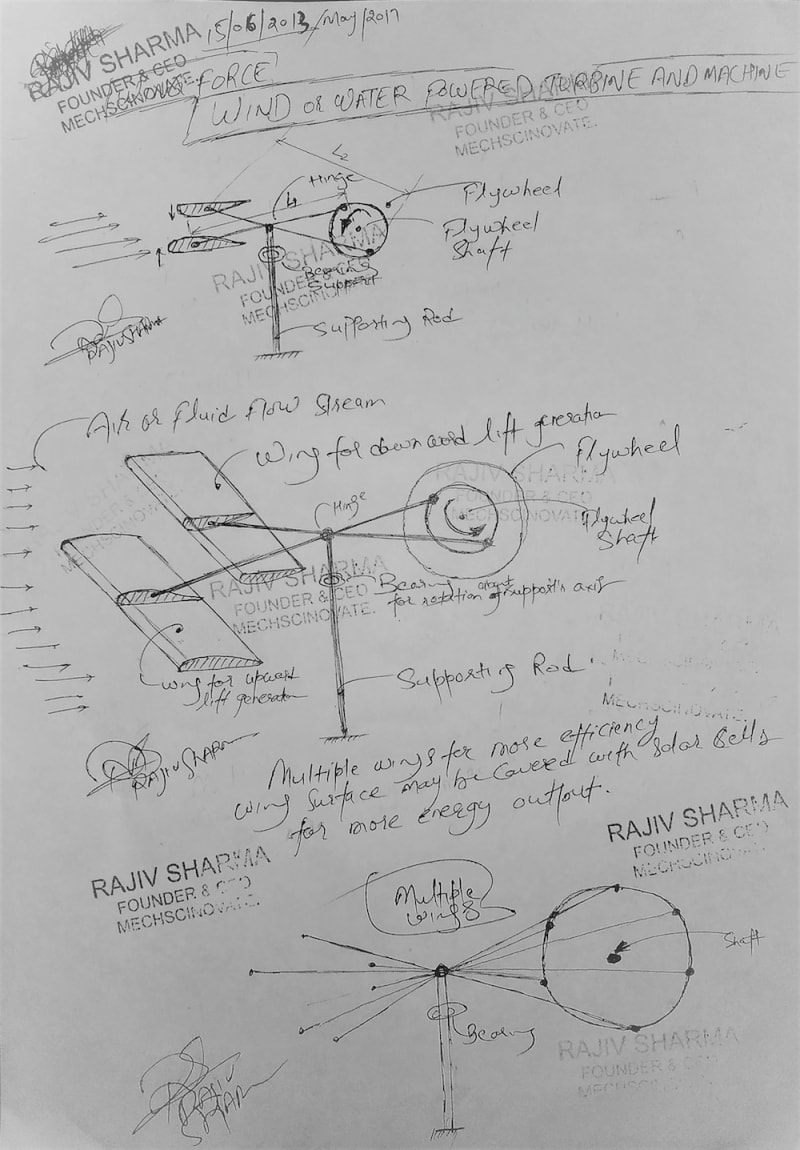 15/06/2013/May/2017
RAJIV SHARMA
FOUNDER & CEO
MECHSCINOVATE.
FORCE
WIND OR WATER POWERED TURBINE AND MACHINE
RAJIV SHARMA
FOUNDER & CEO
MECHSCINOVATE.
L2
Hinge
L1
Flywheel
Flywheel
Shaft
RAJIV SHARMA
FOUNDER & CEO
MECHSCINOVATE.
Bearing
Support
Supporting Rod
RAJIV SHARMA
Air or Fluid Flow Stream
Wing for downward lift generation
Flywheel
RAJIV SHARMA
FOUNDER & CEO
MECHSCINOVATE.
Hinge
Flywheel
Shaft
RAJIV SHARMA
FOUNDER & CEO
MECHSCINOVATE.
Bearing
for rotation about support's axis
MECHSCINOVATE.
Wing for upward
lift generation
Supporting Rod.
RAJIV SHARMA
Multiple wings for more efficiency
Wing Surface may be Covered with Solar Cells
for more energy output.
RAJIV SHARMA
FOUNDER & CEO
MECHSCINOVATE.
RAJIV SHARMA
FOUNDER & CEO
MECHSCINOVATE.
Multiple
Wings
Shaft
Bearing
RAJIV SHARMA
FOUNDER & CEO
RAJIV
SHARMA